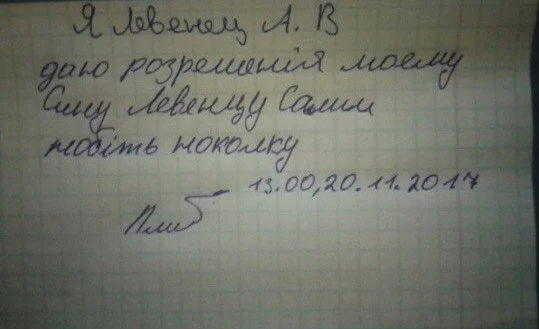 Я Левенец А. В
даю розрешенія моему
Сину Левенцу Саши
побіть ноколку
13.00, 20.11.2017